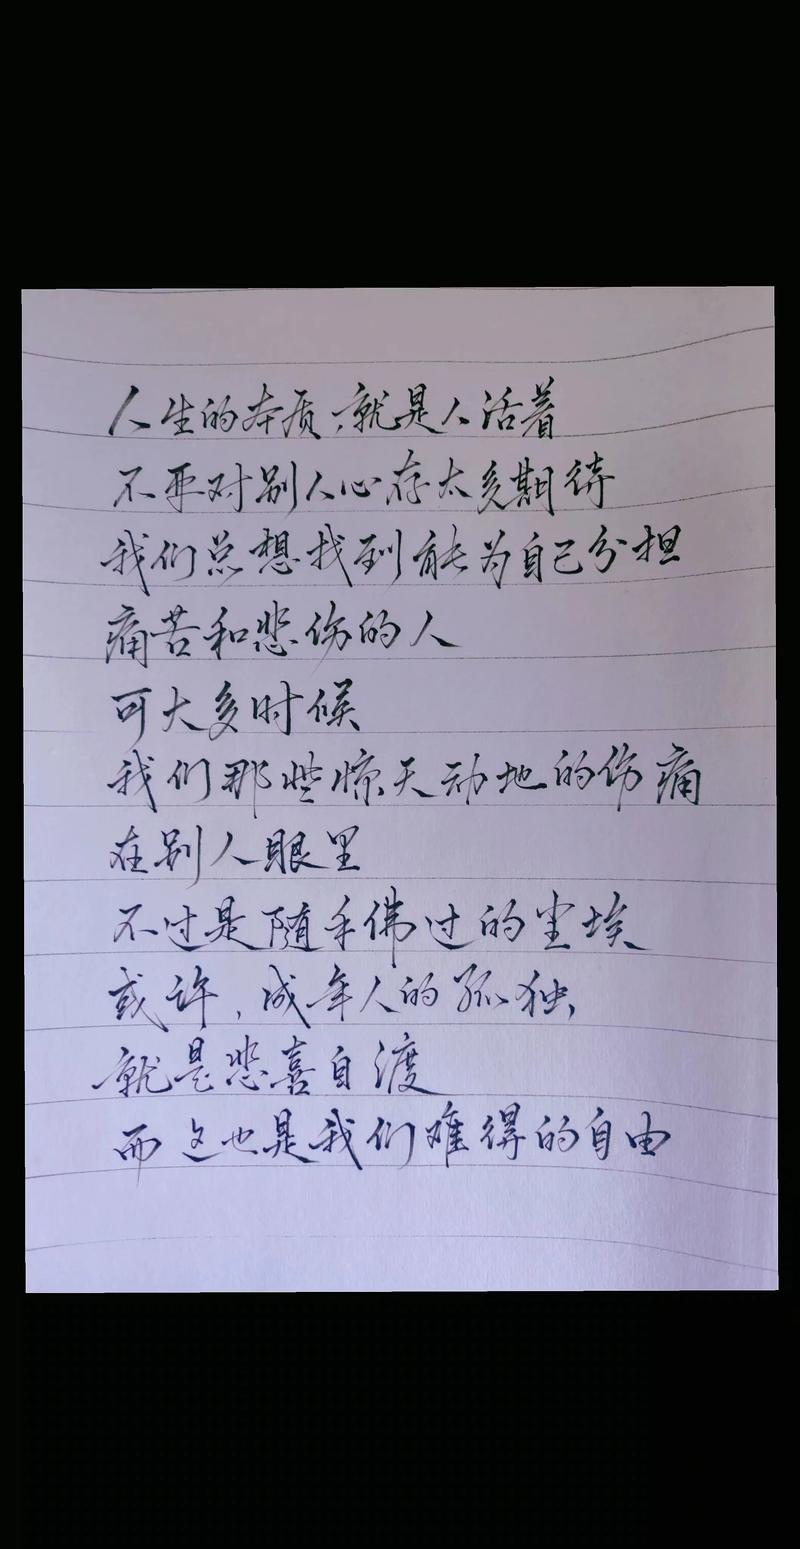 人生的本质，就是人活着
不要对别人心存太多期待
我们总想找到能为自己分担
痛苦和悲伤的人
可大多时候
我们那些惊天动地的伤痛
在别人眼里
不过是随手佛过的尘埃
或许，成年人的孤独，
就是悲喜自渡
而这也是我们难得的自由